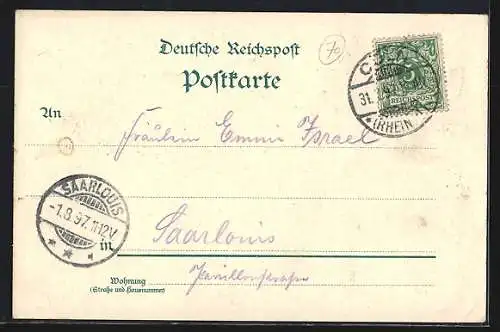 Deutsche Reichspost
Postkarte
70
5
REICHSPOST
31.
(RHEIN)
An
Fräulein Emmi Israel
SAARLOUIS
-1.8.97.11-12V
in
Saarlouis
Wohnung
(Straße und Hausnummer)